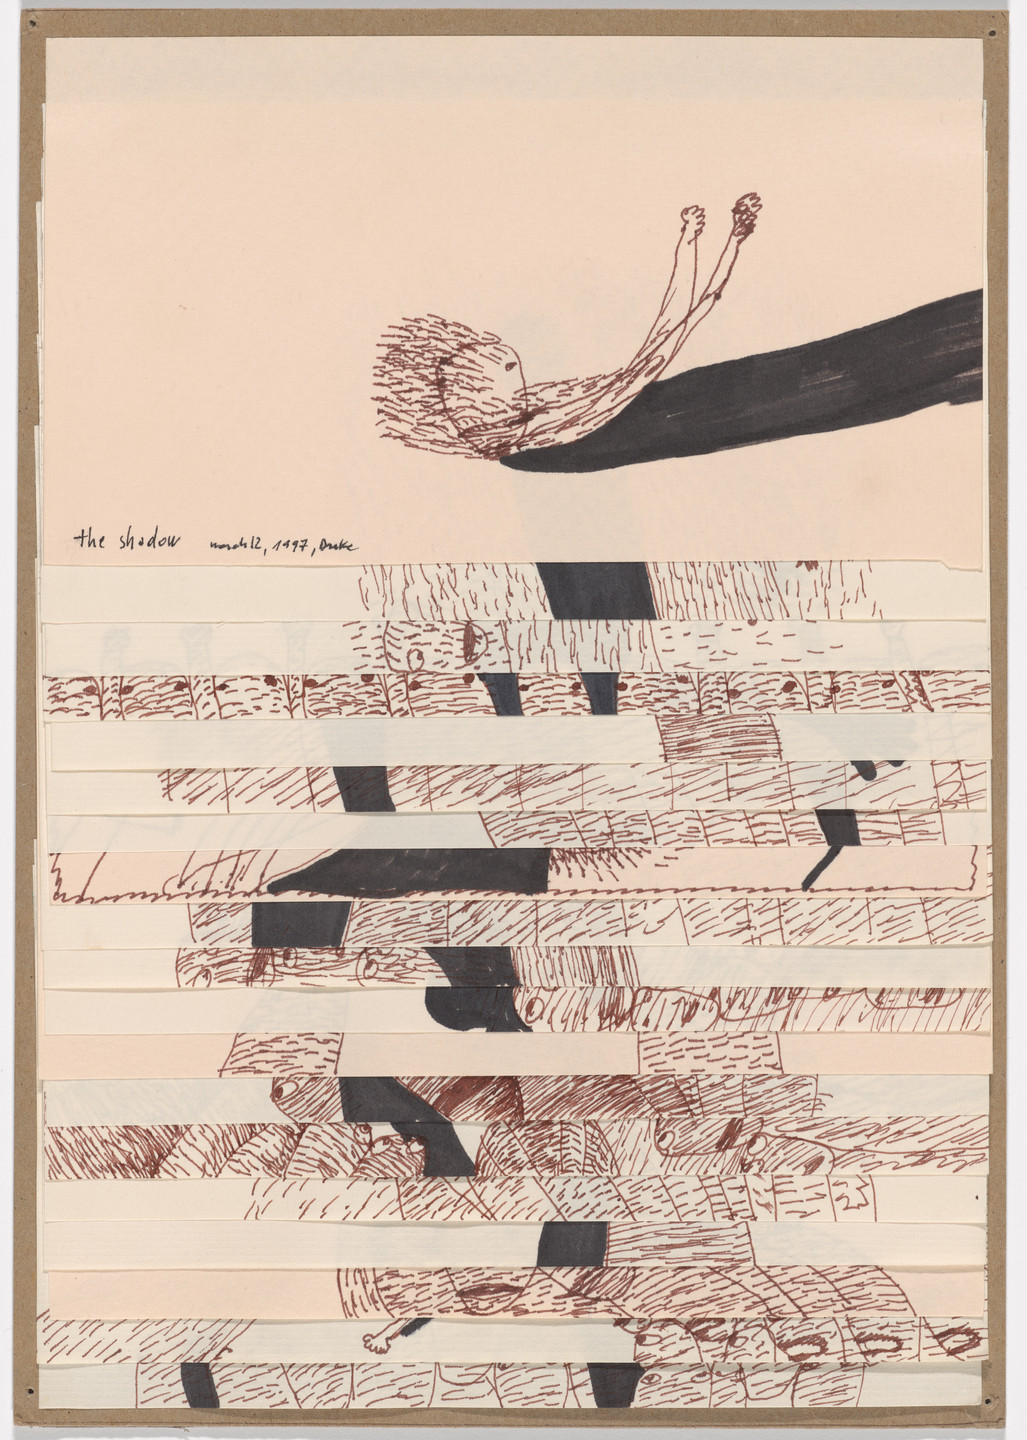 the shadow march 12, 1997,